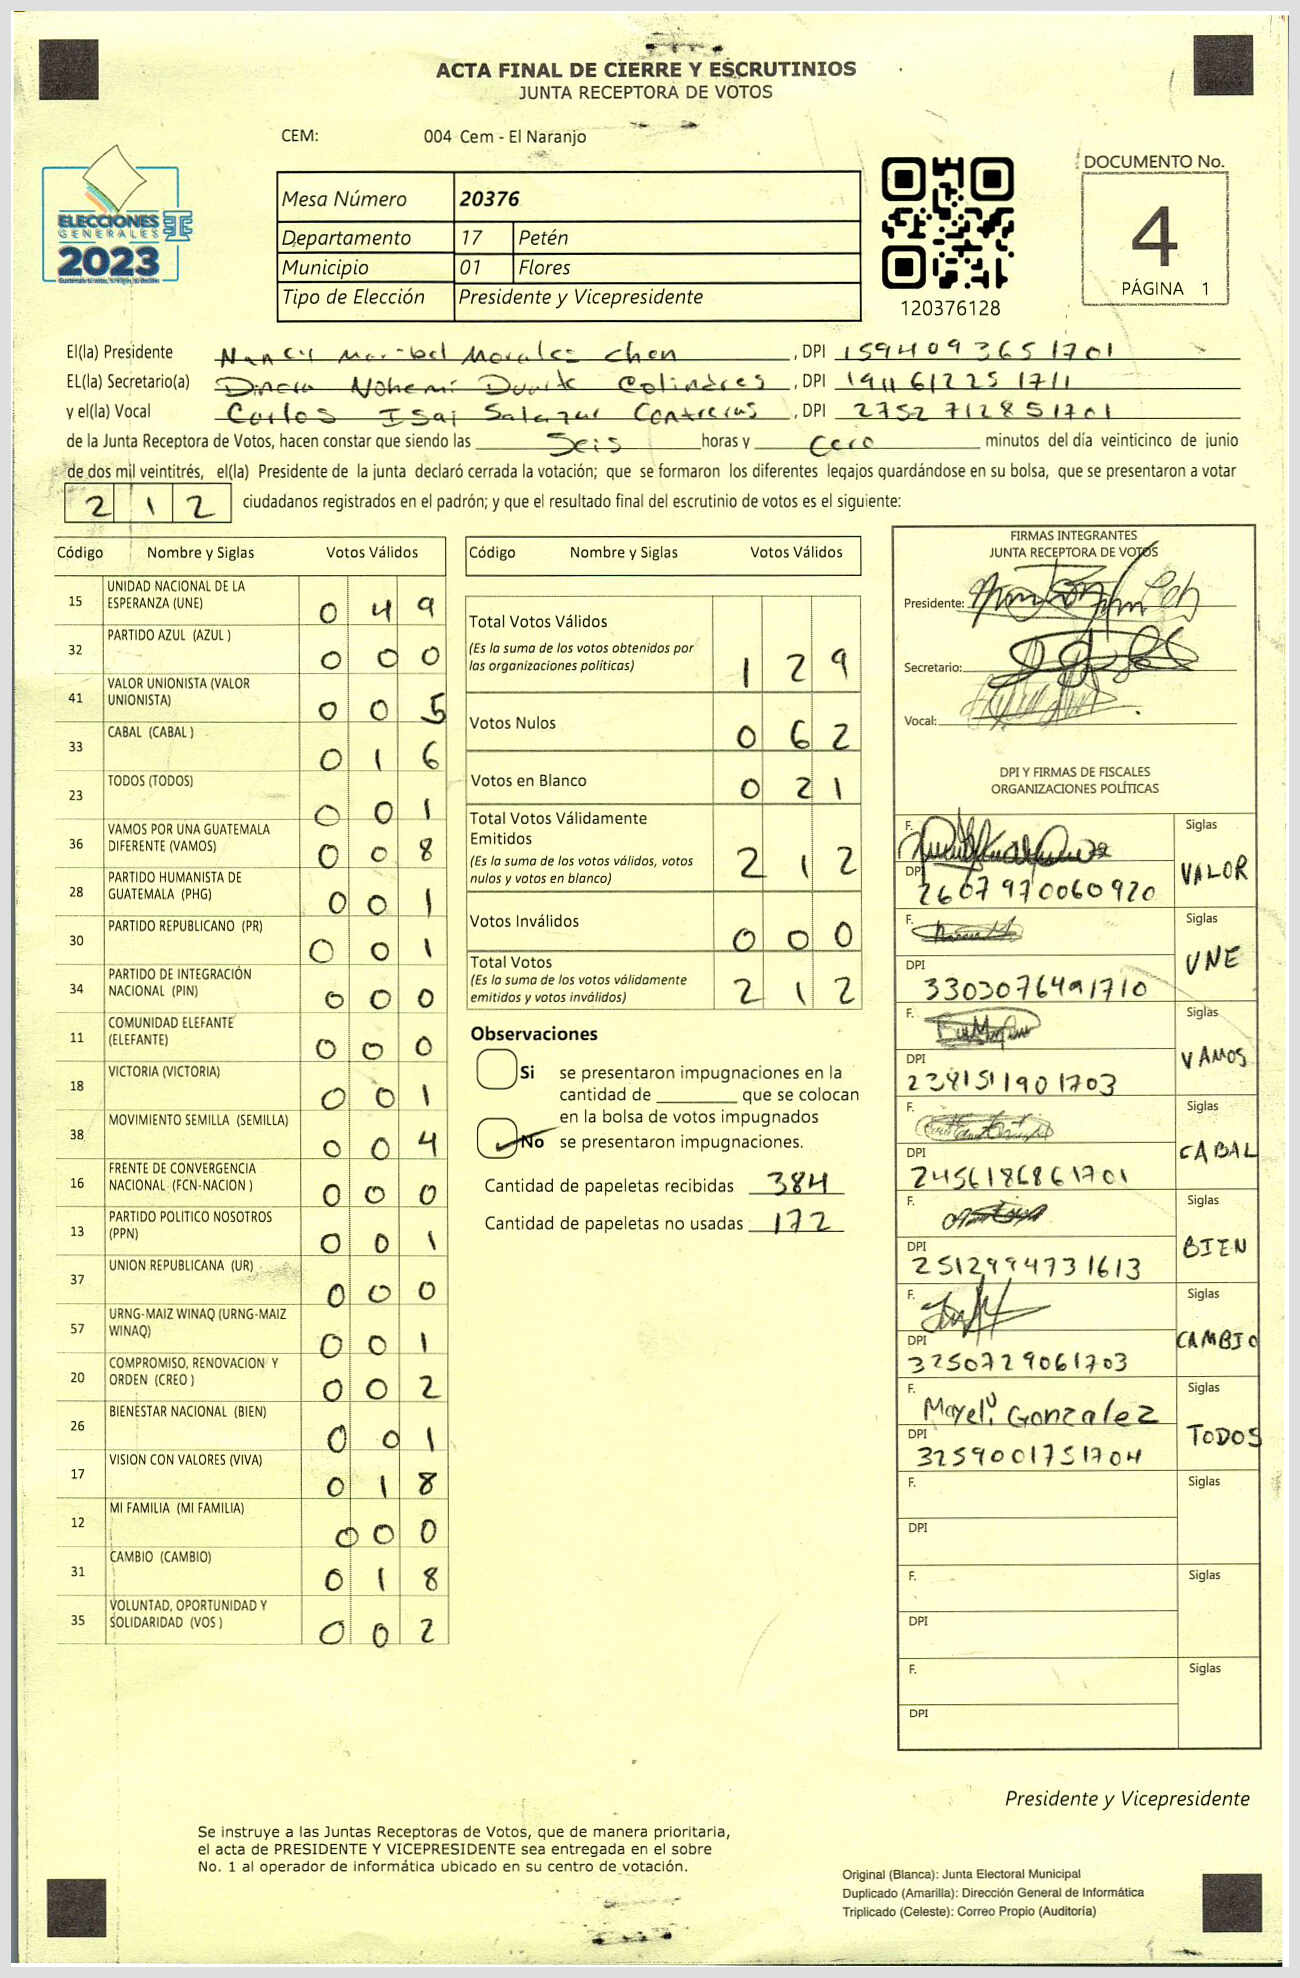 ACTA FINAL DE CIERRE Y ESCRUTINIOS
JUNTA RECEPTORA DE VOTOS
CEM: 004 Cem - El Naranjo
ELECCIONES
GENERALES
2023
Mesa Número 20376
Departamento 17 Petén
Municipio 01 Flores
Tipo de Elección Presidente y Vicepresidente
120376128
DOCUMENTO No.
4
PÁGINA 1
El(la) Presidente Nancy Maribel Morales Chen, DPI 1594093651701
EL(la) Secretario(a) Dinora Nohemí Duarte Colindres, DPI 1911612251711
y el(la) Vocal Carlos Isai Salazar Contreras, DPI 2752712851701
de la Junta Receptora de Votos, hacen constar que siendo las Seis horas y Cero minutos del día veinticinco de junio
de dos mil veintitrés, el(la) Presidente de la junta declaró cerrada la votación; que se formaron los diferentes legajos guardándose en su bolsa, que se presentaron a votar
212 ciudadanos registrados en el padrón; y que el resultado final del escrutinio de votos es el siguiente:
Código Nombre y Siglas Votos Válidos
15 UNIDAD NACIONAL DE LA
ESPERANZA (UNE) 049
32 PARTIDO AZUL (AZUL ) 000
41 VALOR UNIONISTA (VALOR
UNIONISTA) 005
33 CABAL (CABAL ) 016
23 TODOS (TODOS) 001
36 VAMOS POR UNA GUATEMALA
DIFERENTE (VAMOS) 008
28 PARTIDO HUMANISTA DE
GUATEMALA (PHG) 001
30 PARTIDO REPUBLICANO (PR) 001
34 PARTIDO DE INTEGRACIÓN
NACIONAL (PIN) 000
11 COMUNIDAD ELEFANTE
(ELEFANTE) 000
18 VICTORIA (VICTORIA) 001
38 MOVIMIENTO SEMILLA (SEMILLA) 004
16 FRENTE DE CONVERGENCIA
NACIONAL (FCN-NACION ) 000
13 PARTIDO POLITICO NOSOTROS
(PPN) 001
37 UNION REPUBLICANA (UR) 000
57 URNG-MAIZ WINAQ (URNG-MAIZ
WINAQ) 001
20 COMPROMISO, RENOVACION Y
ORDEN (CREO ) 002
26 BIENESTAR NACIONAL (BIEN) 001
17 VISION CON VALORES (VIVA) 018
12 MI FAMILIA (MI FAMILIA) 000
31 CAMBIO (CAMBIO) 018
35 VOLUNTAD, OPORTUNIDAD Y
SOLIDARIDAD (VOS ) 002
Código Nombre y Siglas Votos Válidos
Total Votos Válidos
(Es la suma de los votos obtenidos por
las organizaciones políticas) 129
Votos Nulos 062
Votos en Blanco 021
Total Votos Válidamente
Emitidos
(Es la suma de los votos válidos, votos
nulos y votos en blanco) 212
Votos Inválidos 000
Total Votos
(Es la suma de los votos válidamente
emitidos y votos inválidos) 212
Observaciones
Si se presentaron impugnaciones en la
cantidad de ________ que se colocan
en la bolsa de votos impugnados
No se presentaron impugnaciones.
Cantidad de papeletas recibidas 384
Cantidad de papeletas no usadas 172
FIRMAS INTEGRANTES
JUNTA RECEPTORA DE VOTOS
Presidente:
Secretario:
Vocal:
DPI Y FIRMAS DE FISCALES
ORGANIZACIONES POLÍTICAS
F. Siglas
DPI 2607970060920 VALOR
F. Siglas
DPI 3303076491710 UNE
F. Siglas
DPI 2381511901703 VAMOS
F. Siglas
DPI 2456186861701 CABAL
F. Siglas
DPI 2512994731613 BIEN
F. Siglas
DPI 3250729061703 CAMBIO
F. Mayeli Gonzalez Siglas
DPI 3259001751704 TODOS
F. Siglas
DPI
F. Siglas
DPI
F. Siglas
DPI
Presidente y Vicepresidente
Se instruye a las Juntas Receptoras de Votos, que de manera prioritaria,
el acta de PRESIDENTE Y VICEPRESIDENTE sea entregada en el sobre
No. 1 al operador de informática ubicado en su centro de votación.
Original (Blanca): Junta Electoral Municipal
Duplicado (Amarilla): Dirección General de Informática
Triplicado (Celeste): Correo Propio (Auditoría)